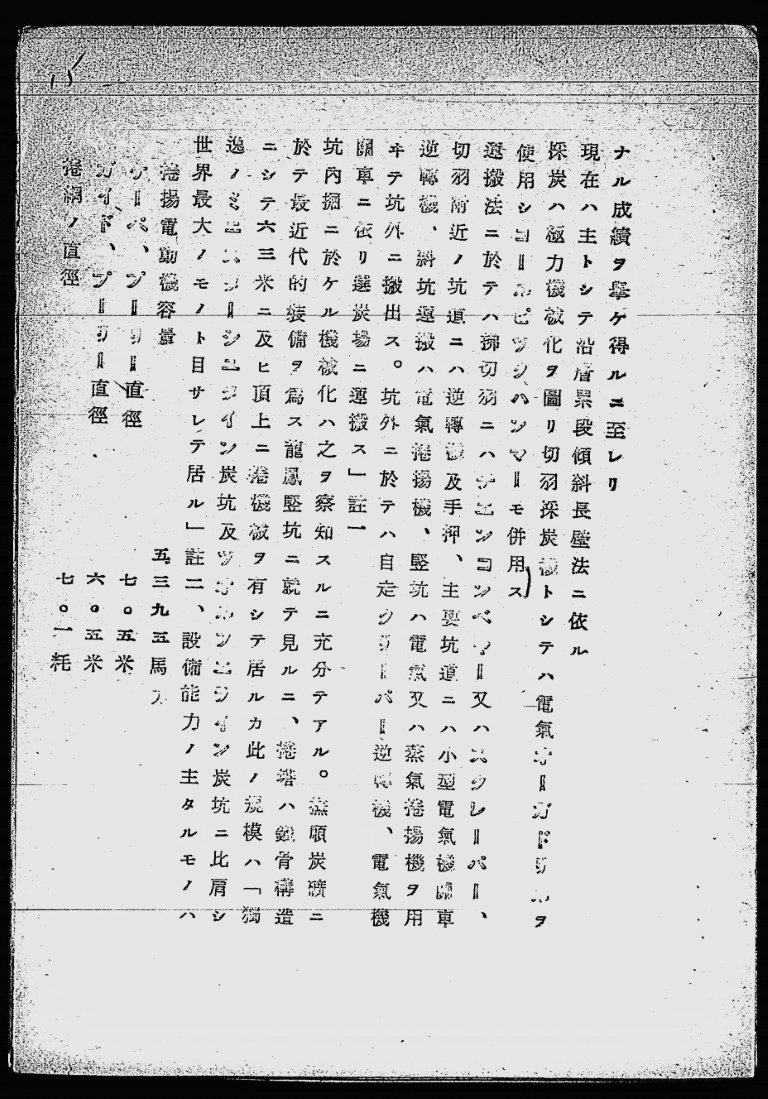 ナル成績ヲ擧ケ得ルニ至レリ
現在ハ主トシテ沿層累段傾斜長壁法ニ依ル
採炭ハ極力機械化ヲ圖リ切羽採炭機トシテハ電氣オーガドリルヲ
使用シコールピツクハンマーモ併用ス
運搬法ニ於テハ揶切羽ニハチエンコンベヤー又ハスクレーパー、
切羽附近ノ坑道ニハ逆轉機及手押、主要坑道ニハ小型電氣機關車
逆轉機、斜坑運搬ハ電氣捲揚機、竪坑ハ電氣又ハ蒸氣捲揚機ヲ用
ヰテ坑外ニ搬出ス。坑外ニ於テハ自走クリーパー逆轉機、電氣機
關車ニ依リ選炭場ニ運搬ス」註一
坑内掘ニ於ケル機械化ハ之ヲ察知スルニ充分テアル。撫順炭礦ニ
於テ最近代的裝備ヲ爲ス龍鳳竪坑ニ就テ見ルニ、捲塔ハ鐵骨構造
ニシテ六三米ニ及ヒ頂上ニ捲機械ヲ有シテ居ルカ此ノ規模ハ「獨
逸ノミニスターシユタイン炭坑及 炭坑ニ比肩シ
世界最大ノモノト目サレテ居ル」註二、設備能力ノ主タルモノハ
捲揚電動機容量 五三九五馬力
ケーペ、プーリー直徑 七〇五米
ガイド、プーリー直徑 六〇五米
捲綱ノ直徑 七〇一粍